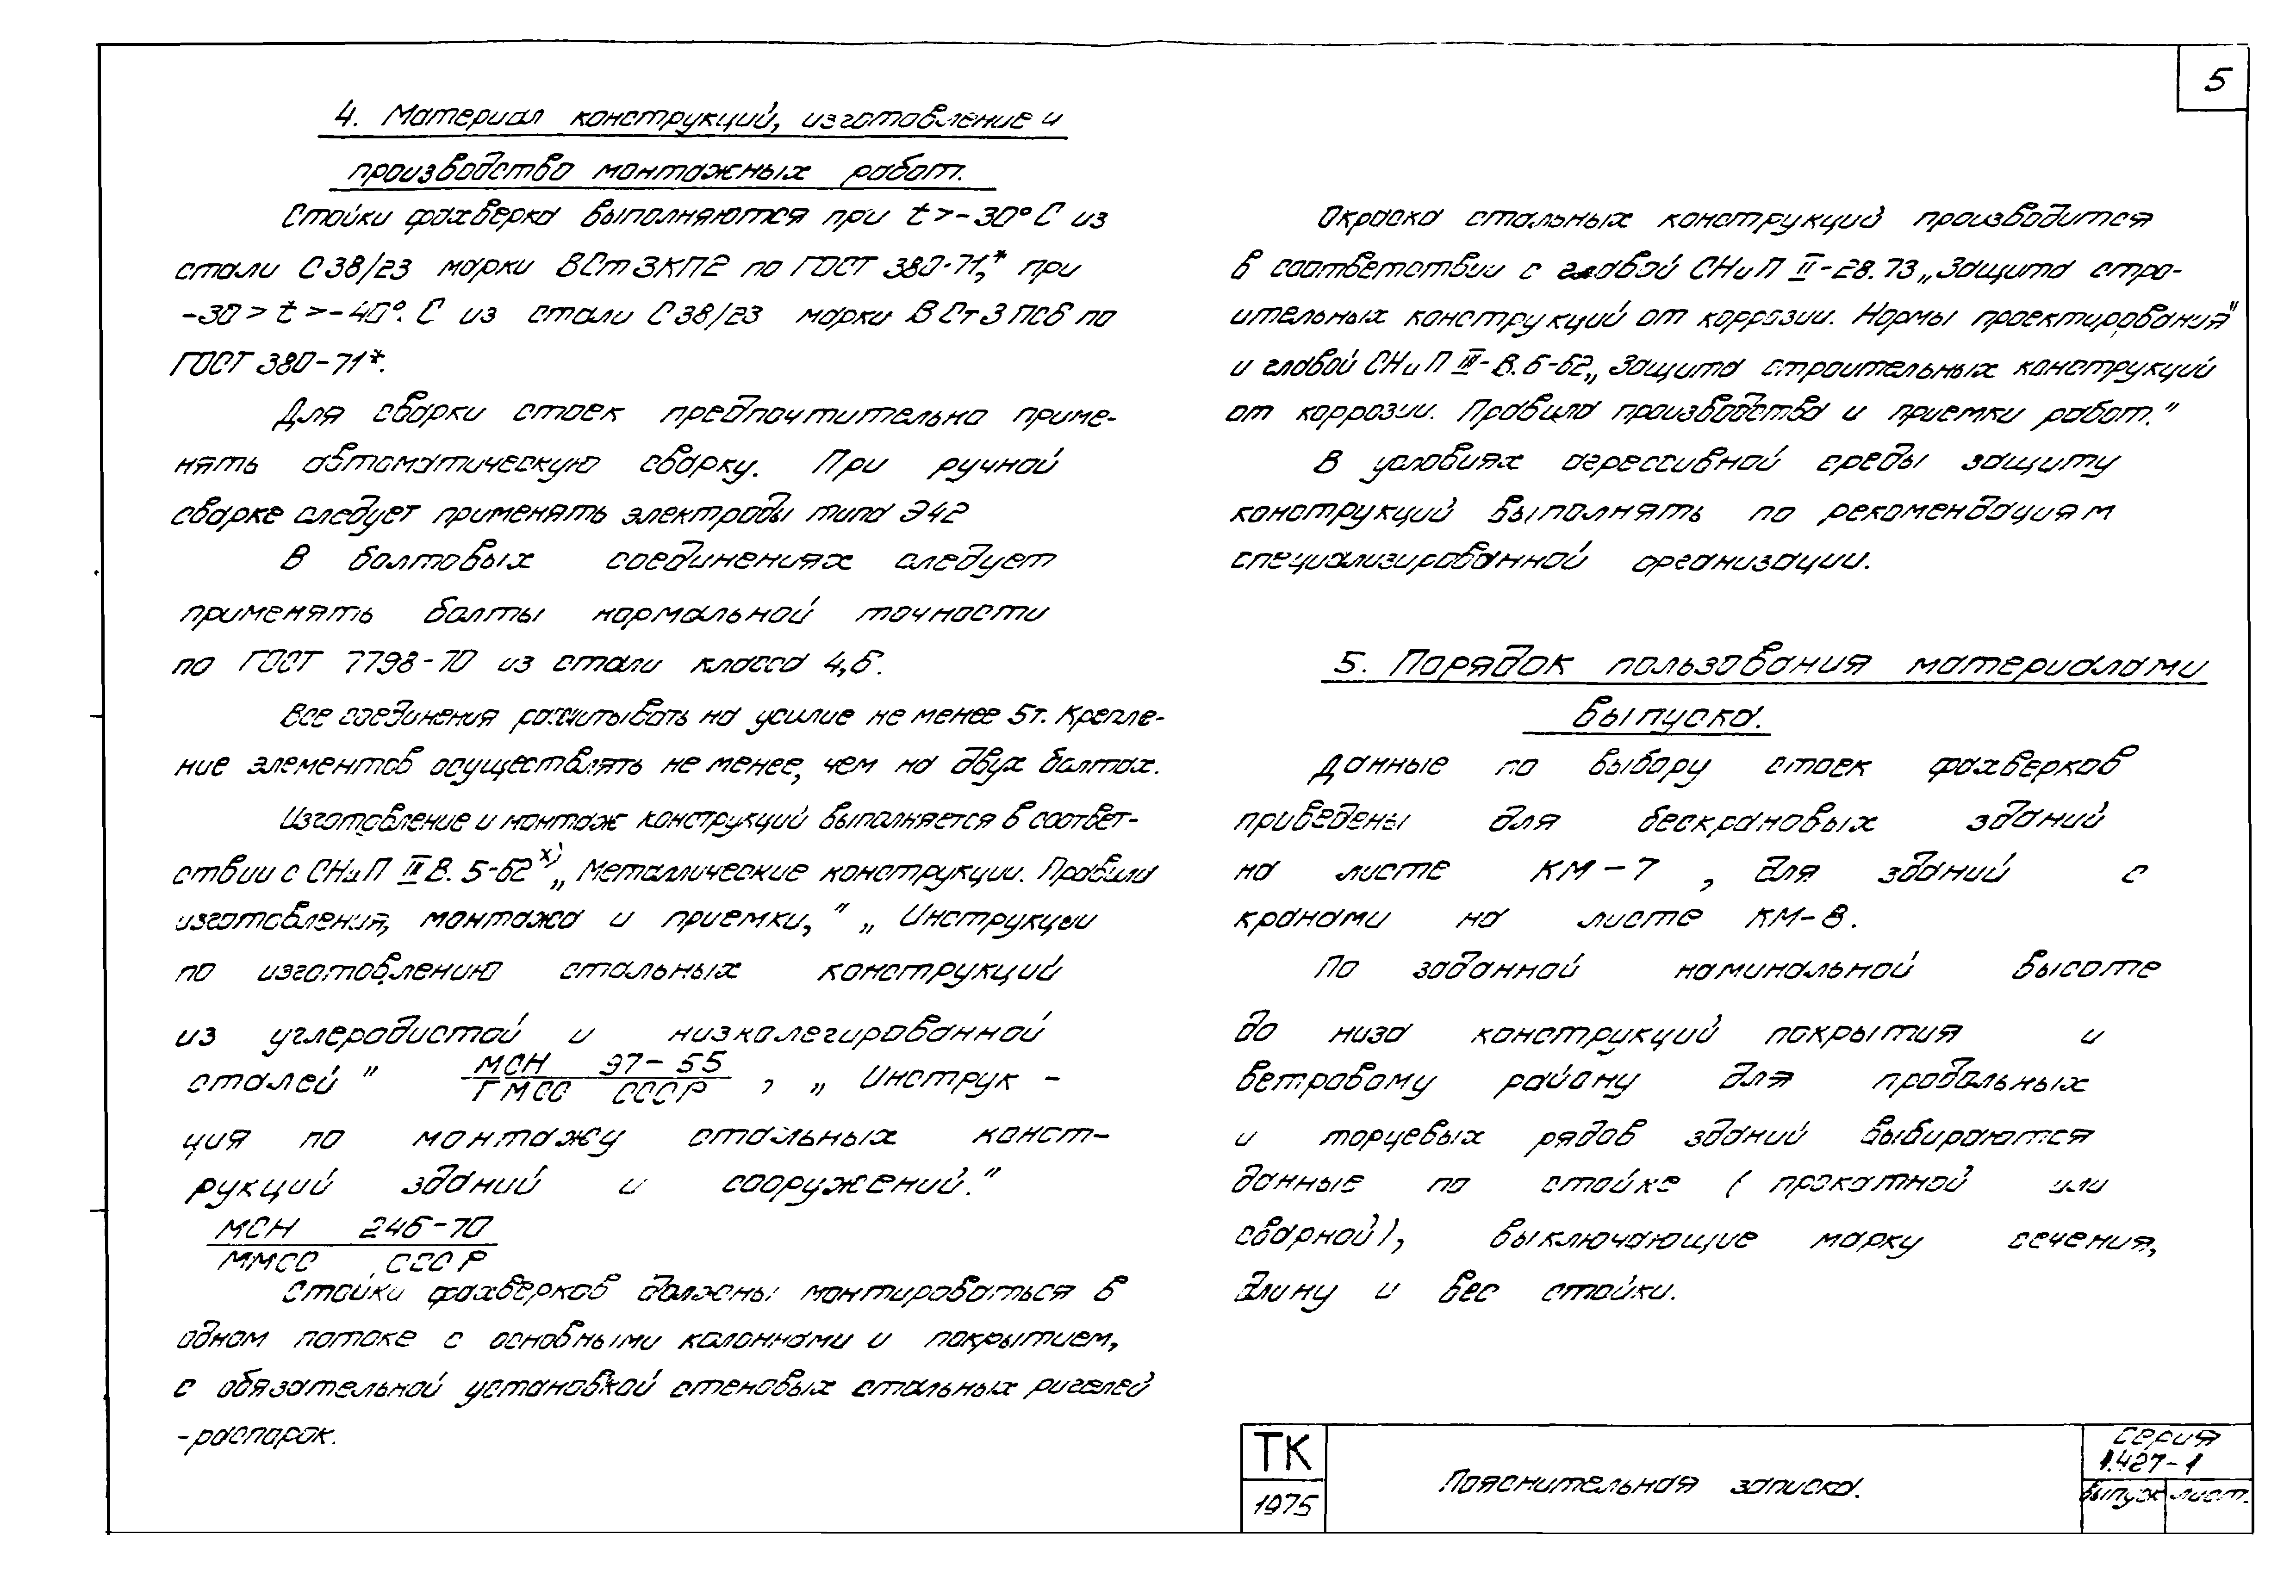 5
4. Материал конструкций, изготовление и
производство монтажных работ.
Стойки фахверка выполняются при t>-30°С из
стали С38/23 марки ВСт3КП2 по ГОСТ 380-71*, при
-30>t>-40°. С из стали С38/23 марки ВСт3ПС6 по
ГОСТ 380-71*.
Для сварки стоек предпочтительно приме-
нять автоматическую сварку. При ручной
сварке следует применять электроды типа Э42
В болтовых соединениях следует
применять болты нормальной точности
по ГОСТ 7798-70 из стали класса 4,6.
Все соединения рассчитывать на усилие не менее 5т. Крепле-
ние элементов осуществлять не менее, чем на двух болтах.
Изготовление и монтаж конструкций выполняется в соответ-
ствии с СНиП III В. 5-62х) „Металлические конструкции. Правила
изготовления, монтажа и приемки," „Инструкции
по изготовлению стальных конструкций
из углеродистой и низколегированной
сталей" МСН 97-55 , „Инструк-
ГМСС СССР
ция по монтажу стальных конст-
рукций зданий и сооружений."
МСН 246-70
ММСС СССР
Стойки фахверков должны монтироваться в
одном потоке с основными колоннами и покрытием,
с обязательной установкой стеновых стальных ригелей
-распорок.
Окраска стальных конструкций производится
в соответствии с главой СНиП II-28.73 „Защита стро-
ительных конструкций от коррозии. Нормы проектирования"
и главой СНиП III-В.6-62 „Защита строительных конструкций
от коррозии. Правила производства и приемки работ."
В условиях агрессивной среды защиту
конструкций выполнять по рекомендациям
специализированной организации.
5. Порядок пользования материалами
выпуска.
Данные по выбору стоек фахверков
приведены для бескрановых зданий
на листе КМ-7 , для зданий с
кранами на листе КМ-8.
По заданной номинальной высоте
до низа конструкций покрытия и
ветровому району для продольных
и торцевых рядов зданий выбираются
данные по стойке (прокатной или
сварной), выключающие марку сечения,
длину и вес стойки.
ТК
1975
Пояснительная записка.
серия
1.427-1
выпуск лист.